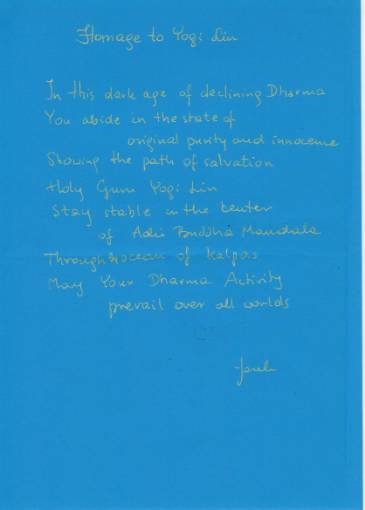 Homage to Yogi Lin
In this dark age of declining Dharma
You abide in the state of
original purity and innocence
Showing the path of salvation
Holy Guru Yogi Lin
Stay stable in the center
of Adhi Buddha Mandala
Through ocean of kalpas
May Your Dharma Activity
prevail over all worlds